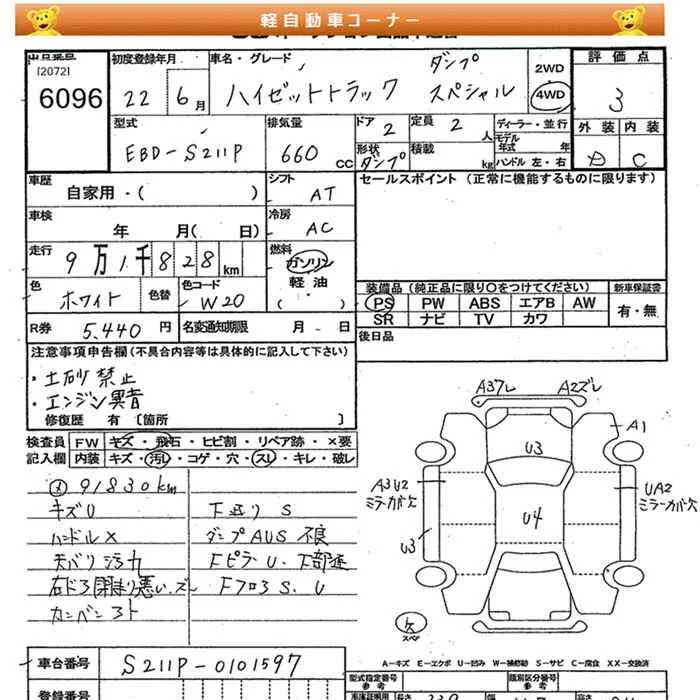 軽自動車コーナー
出品番号 初度登録年月 車名・グレード ダンプ 2WD 評価点
[2072]
6096 22 6月 ハイゼットトラック スペシャル 4WD 3
型式 排気量 ドア 2 定員 2 人 ディーラー・並行 外装 内装
モデル年式 年
EBD-S211P 660 CC 形状 ダンプ 積載 kg ハンドル 左・右 D C
車歴 シフト セールスポイント (正常に機能するものに限ります)
自家用・( ) AT
車検 冷房
年 月( 日) AC
走行 9万1千828km 燃料 ガソリン
軽油
( )
装備品(純正品に限り○をつけてください) 新車保証書
色 ホワイト 色替 色コード W20
PS PW ABS エアB AW 有・無
SR ナビ TV カワ
R券 5,440円 名変通知期限 月 日 後日品
注意事項申告欄(不具合内容等は具体的に記入して下さい)
・土砂禁止
・エンジン異音
修復歴 有〔箇所 〕
検査員 FW キズ・飛石・ヒビ割・リペア跡・×要
記入欄 内装 キズ・汚レ・コゲ・穴・スレ・キレ・破レ
91830km
キズU 下廻り S
ハンドル× ダンプAUS 不良
天バリ汚れ Fピラー U.
右ドア閉まり悪い.ズレ Fフロア S.U
カンバンアト
A3ズレ A2ズレ
A1
U3
A3U2 UA2
ミラーカバー欠 ミラーカバー欠
U3 U4
欠
スペア
A-キズ E-エクボ U-凹み W-補修跡 S-サビ C-腐食 XX-交換済
車台番号 S211P-0101597
型式指定番号 類別区分番号
参考 参考
登録番号